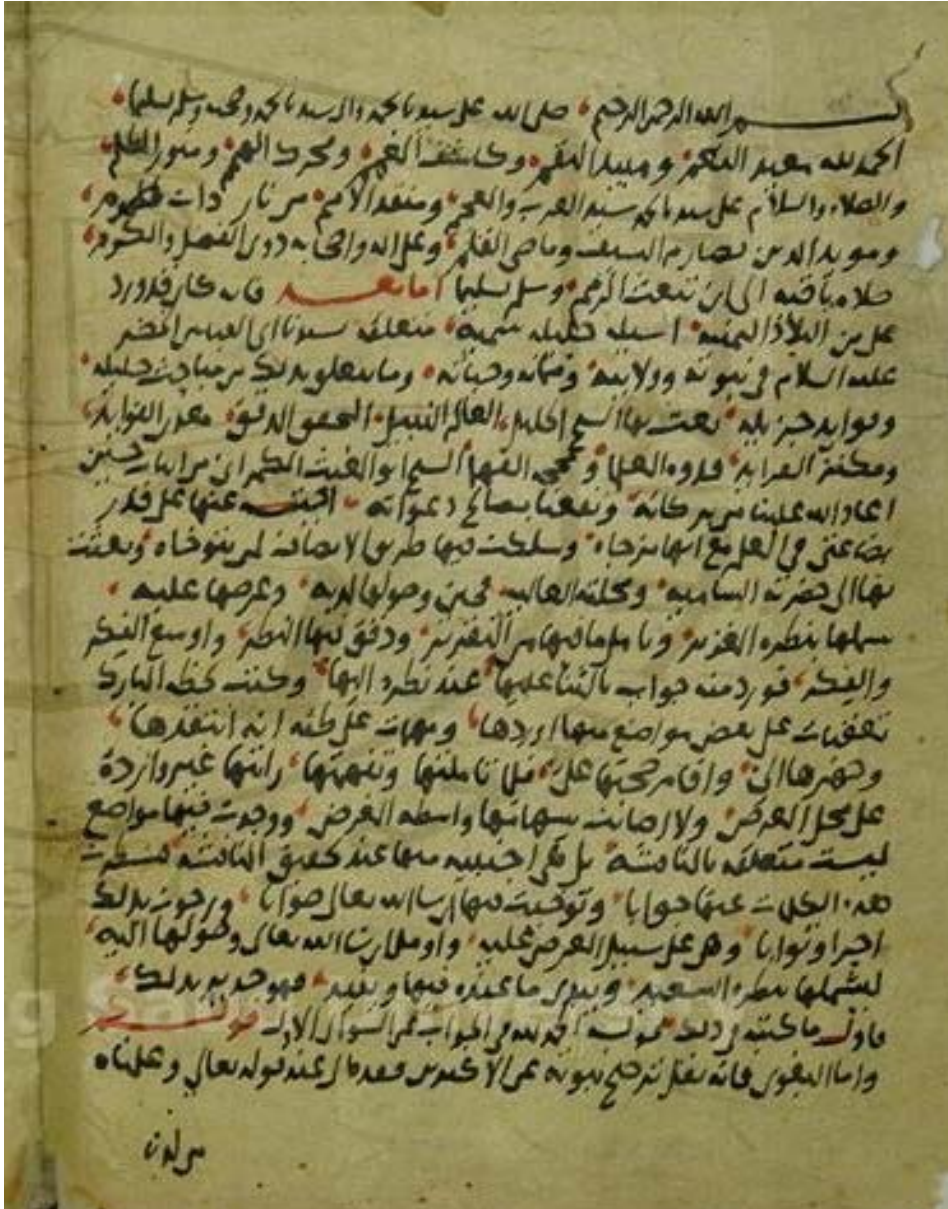 بسم الله الرحمن الرحيم صلى الله على سيدنا محمد وال سيدنا محمد وصحبه وسلم تسليما
الحمد لله معيد النعم ومبيد النقم وكاشف الغم ومحرك الهمم ومنور الظلم
والصلاة والسلام على سيدنا محمد سيد العرب والعجم ومنقذ الأمم من نار ذات
ومويد الدين بصارم السيف وماضى القلم وعلى اله واصحابه ذوى الفضل والكرم
صلاة باقية الى ان تبعث الرمم وسلم تسليما اما بعد فانه كان قد ورد
على من البلاد اليمنية اسيلة جليلة متعلقة بسيدنا ابى العباس الخضر
عليه السلام فى نبوته وولايته ومماته وحياته وما يتعلق بذلك من مباحث جليلة
وفوايد جزيلة بعث بها الشيخ الجليل العالم النبيل المحقق المدقق معدن الفوايد
الفرايد قدوة العلما الفقها الشيخ ابو الغيث
اعاد الله علينا من بركاته ونفعنا بصالح دعواته اجبت عنها على قدر
بضاعتى فى العلم مع انها مزجاة وسلكت فيها طريق الانصاف وبعثت
بها الى حضرته السامية العالية فحين وصولها لديه وعرضها عليه
شملها بنظره العزيز وتامل ما فيها من التقرير ودقق فيها النظر واوسع الفكر
فورد منه جواب بالثنا عليها عند نظره اليها وكتب بخطه المبارك
تعقبات على بعض مواضع منها اوردها على ظنه انه انتقدها
فلما تاملتها وتفهمتها رايتها غير واردة
على محل الغرض ولا اصابت بسهامها واسطة الغرض ووجدت فيها مواضع
ليست متعلقة بل هى اجنبية منها عند تحقيق
هذه الكلمات عنها جوابا وتوخيت فيها ان شا الله تعالى صوابا ورجوت بذلك
اجرا وثوابا وهى على سبيل العرض عليه واومل ان شا الله تعالى وصولها اليه
ليشملها بنظره السعيد ويبدى ما عنده فيها ويفيد فهو جدير بذلك
فاول ما كتبه فى ذلك الجواب عن السوال الاول
واما البغوى فانه نقل ترجيح نبوته عن الاكثرين فقد قال عند قوله تعالى وعلمناه
من لدنا